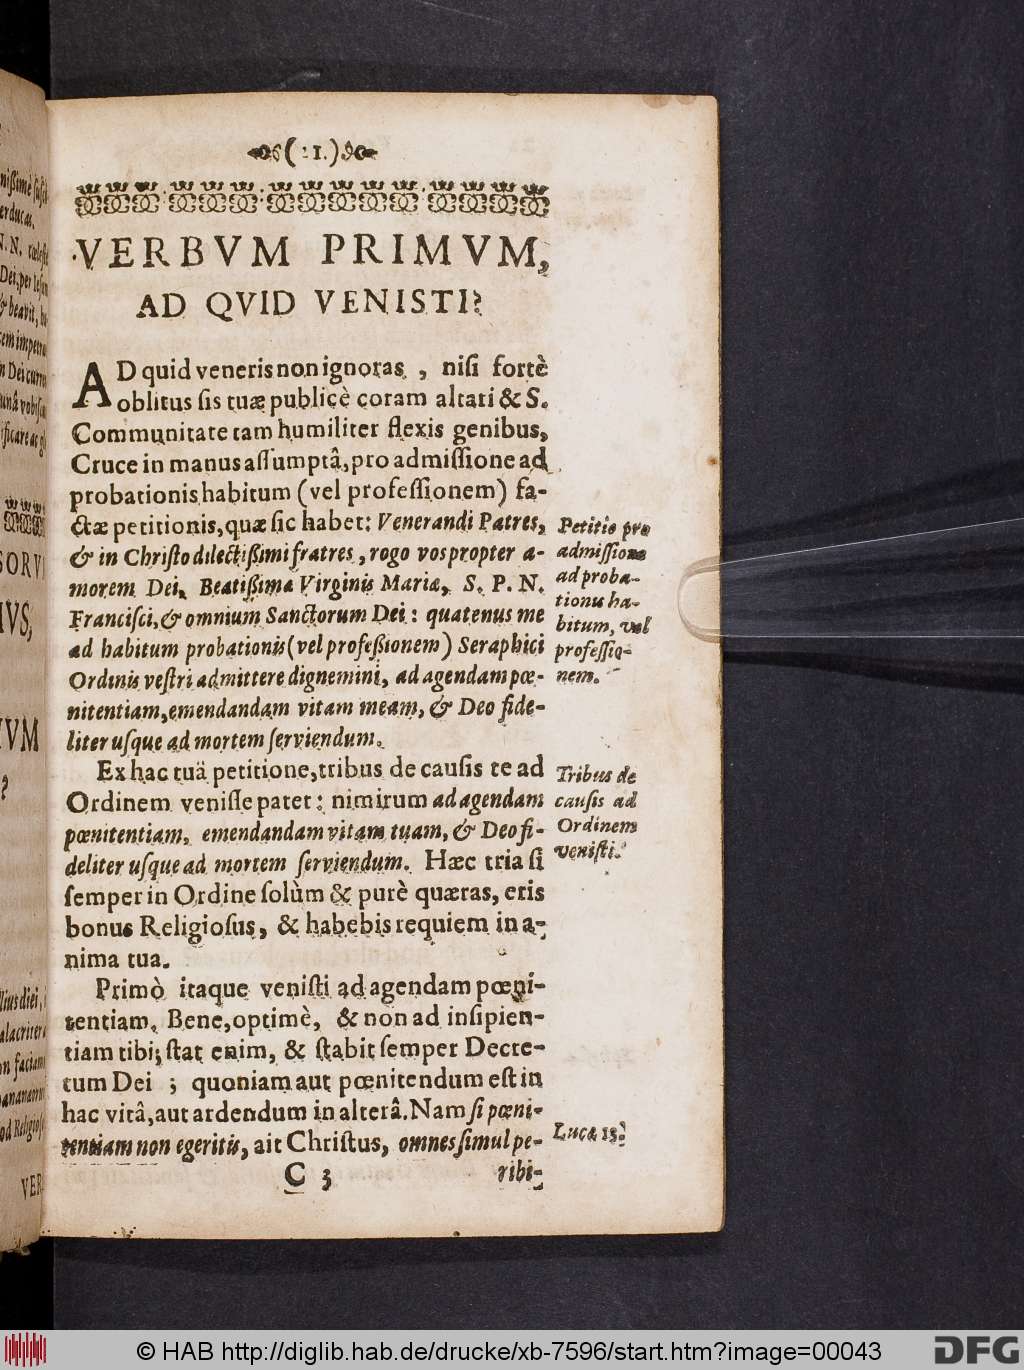 (21.)
VERBVM PRIMVM,
AD QVID VENISTI?
AD quid veneris non ignoras, nisi fortè
oblitus sis tuæ publicè coram altari & S.
Communitate tam humiliter flexis genibus,
Cruce in manus assumptâ, pro admissione ad
probationis habitum (vel professionem) fa-
ctæ petitionis, quæ sic habet: Venerandi Patres,
& in Christo dilectißimi fratres, rogo vos propter a-
morem Dei, Beatißimæ Virginis Mariæ, S. P. N.
Francisci, & omnium Sanctorum Dei: quatenus me
ad habitum probationis (vel profeßionem) Seraphici
Ordinis vestri admittere dignemini, ad agendam pœ-
nitentiam, emendandam vitam meam, & Deo fide-
liter usque ad mortem serviendum.
Petitio pro
admissione
ad proba-
tionis ha-
bitum, vel
professio-
nem.
Ex hac tuâ petitione, tribus de causis te ad
Ordinem venisse patet: nimirum ad agendam
pœnitentiam, emendandam vitam tuam, & Deo fi-
deliter usque ad mortem serviendum. Hæc tria si
semper in Ordine solùm & purè quæras, eris
bonus Religiosus, & habebis requiem in a-
nima tua.
Tribus de
causis ad
Ordinem
venisti.
Primò itaque venisti ad agendam pœni-
tentiam. Bene, optimè, & non ad insipien-
tiam tibi; stat enim, & stabit semper Decre-
tum Dei; quoniam aut pœnitendum est in
hac vitâ, aut ardendum in alterâ. Nam si pœni-
tentiam non egeritis, ait Christus, omnes simul pe-
Lucæ 13.
C 3
ribi-
© HAB http://diglib.hab.de/drucke/xb-7596/start.htm?image=00043
DFG